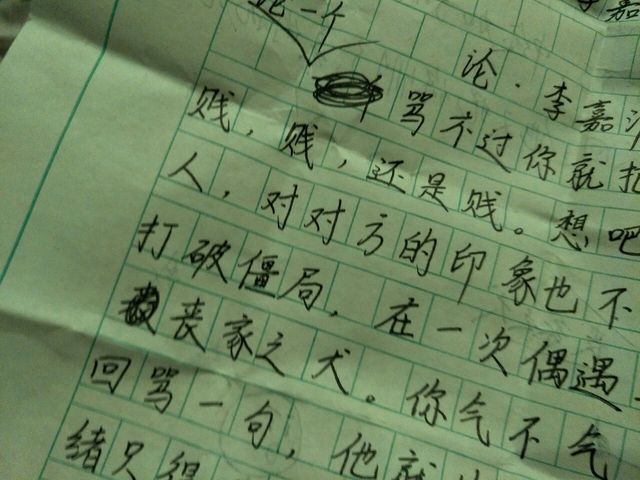 此一个
论.李嘉
骂不过你就
贱,贱,还是贱。想吧
人,对对方的印象也不
打破僵局,在一次偶遇
丧家之犬。你气不气
回骂一句,他就
绪只得